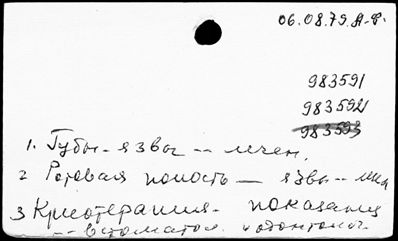 06.08.79.А-Ф.
983591
983592
983593
1. Губы - язвы -- лечен.
2 Ротовая полость - язвы --
3 Криотерапия - показания
-- в стоматол.